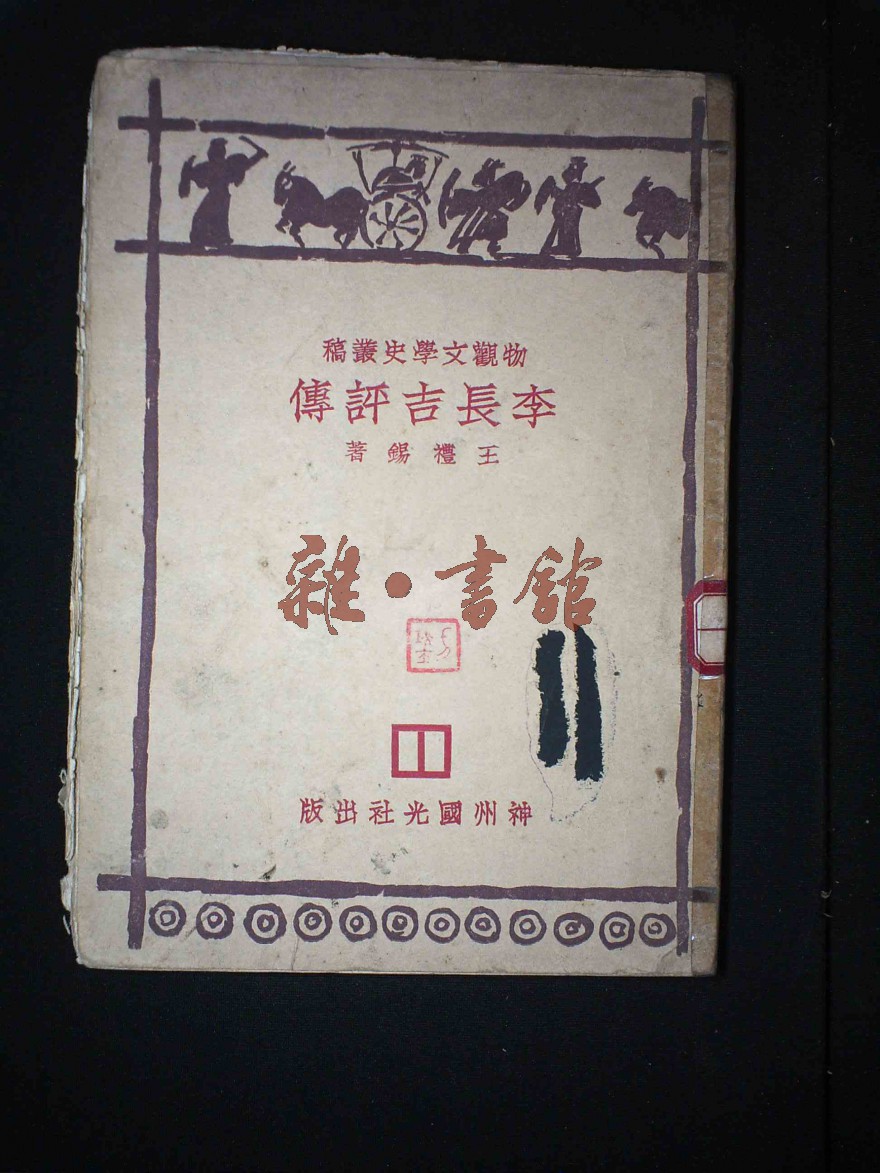 物觀文學史叢稿
李長吉評傳
王禮錫著
雜·書館
神州國光社出版